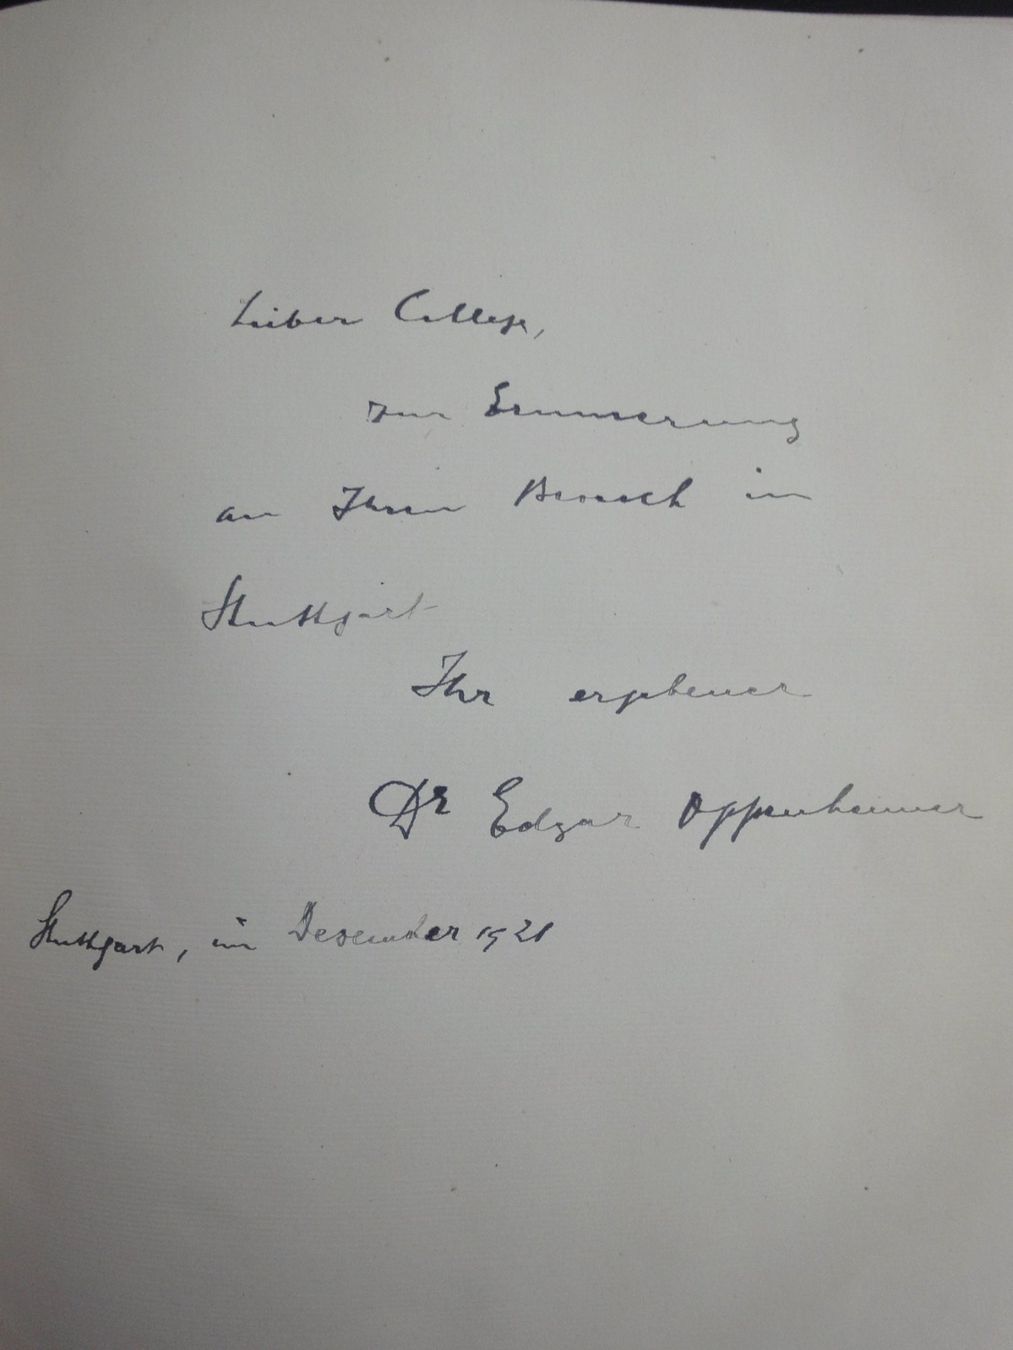 Lieber College,
zur Erinnerung
an Ihren Besuch in
Stuttgart
Ihr ergebener
Dr Edgar Oppenheimer
Stuttgart, im Dezember 1921